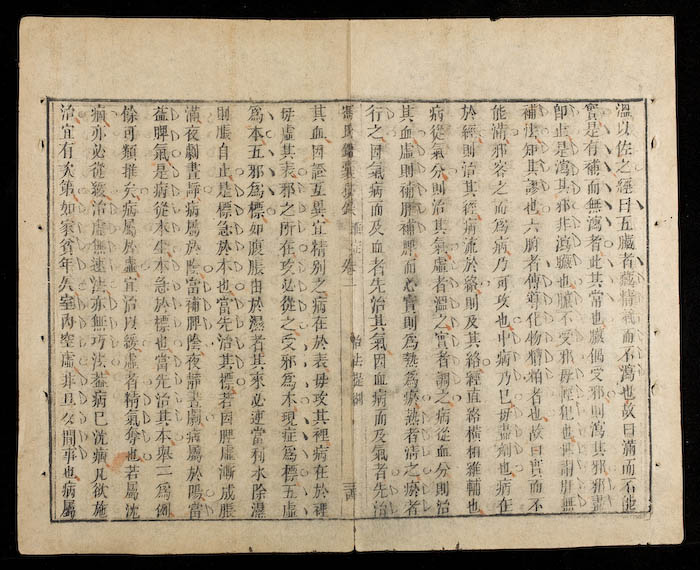 溫以佐之經曰五臟者藏精氣而不瀉也故曰滿而不能
實是有補而無瀉者此其常也臟偶受邪則瀉其邪邪盡
即止是瀉其邪非瀉臟也臟不受邪毋輕犯也世謂肝無
補法知其謬也六腑者傳導化物糟粕者也故曰實而不
能滿邪客之而為病乃可攻也中病乃已毋盡劑也病在
於經則治其經病流於絡則及其絡經直絡橫相維輔也
病從氣分則治其氣虛者溫之實者調之病從血分則治
其血虛則補肝補脾而心實則為熱為瘀熱者清之瘀者
行之因氣病而及血者先治其氣因血病而及氣者先治
馮氏錦囊秘錄 雜症卷一 治法提綱
其血因證互異宜精別之病在於表毋攻其裡病在於裡
毋虛其表邪之所在攻必從之受邪為本現症為標五虛
為本五邪為標如腹脹由於濕者其來必速當利水除濕
則脹自止是標急於本也當先治其標若因脾虛漸成脹
滿夜劇晝靜病屬於陰當補脾陰夜靜晝劇病屬於陽當
益脾氣是病從本生本急於標也當先治其本舉一為例
餘可類推矣病屬於虛宜治以緩虛者精氣奪也若屬沈
痼亦必從緩治虛無速法亦無巧法蓋病已沈痼凡欲施
治宜有次第如家貧年
室內空虛非旦夕間事也病屬